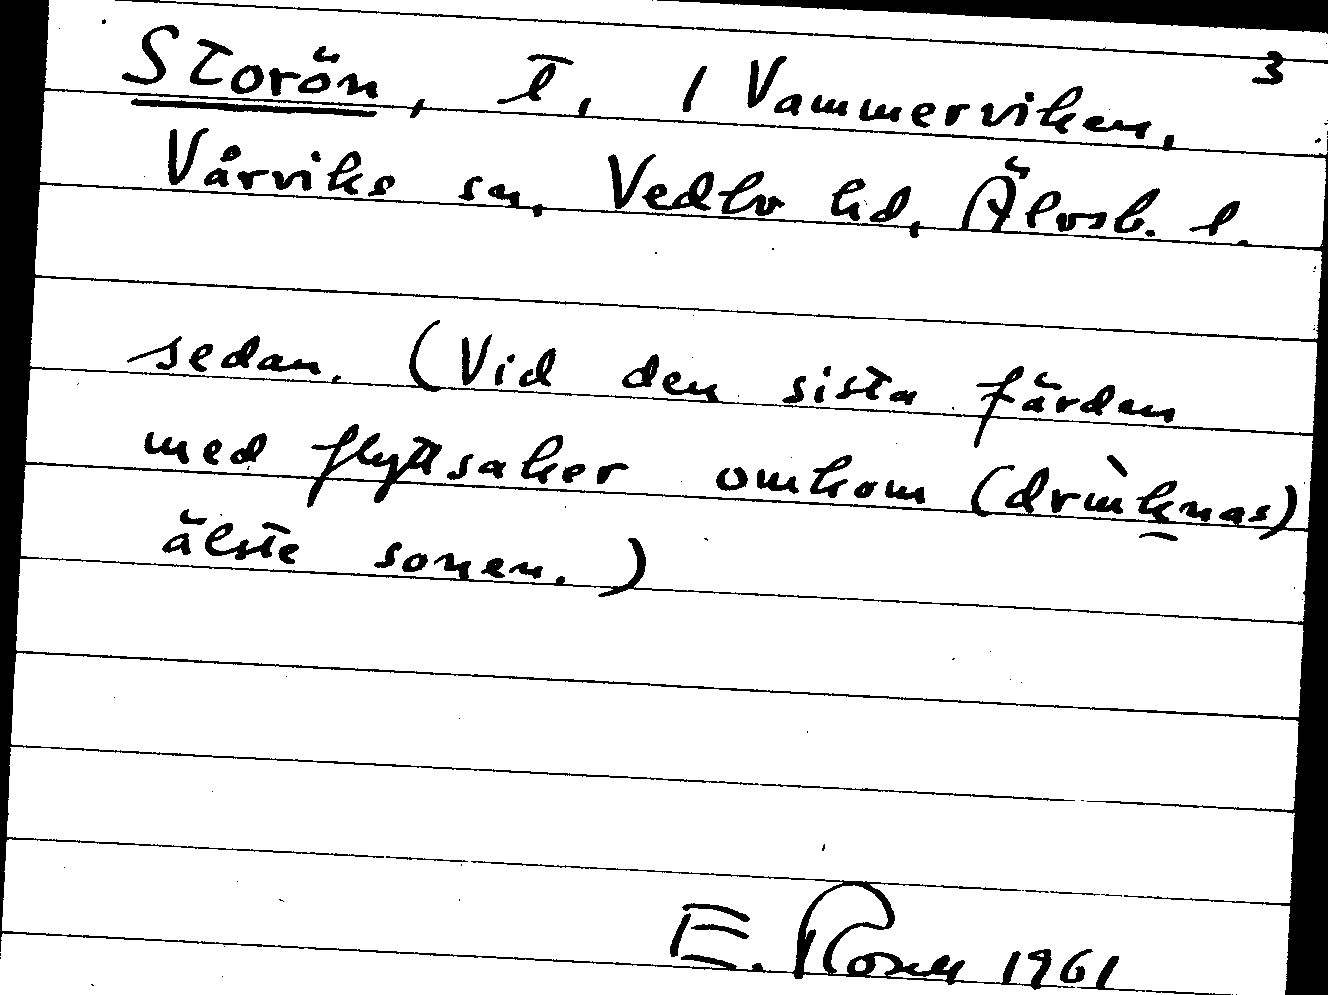 3
Storön, Ī, / Vammerviken,
Vårviks sn, Vedbo hd, Älvsb. l.
sedan. (Vid den sista färden
med flyttsaker omkom (drunknas)
älste sonen.)
E. 1961